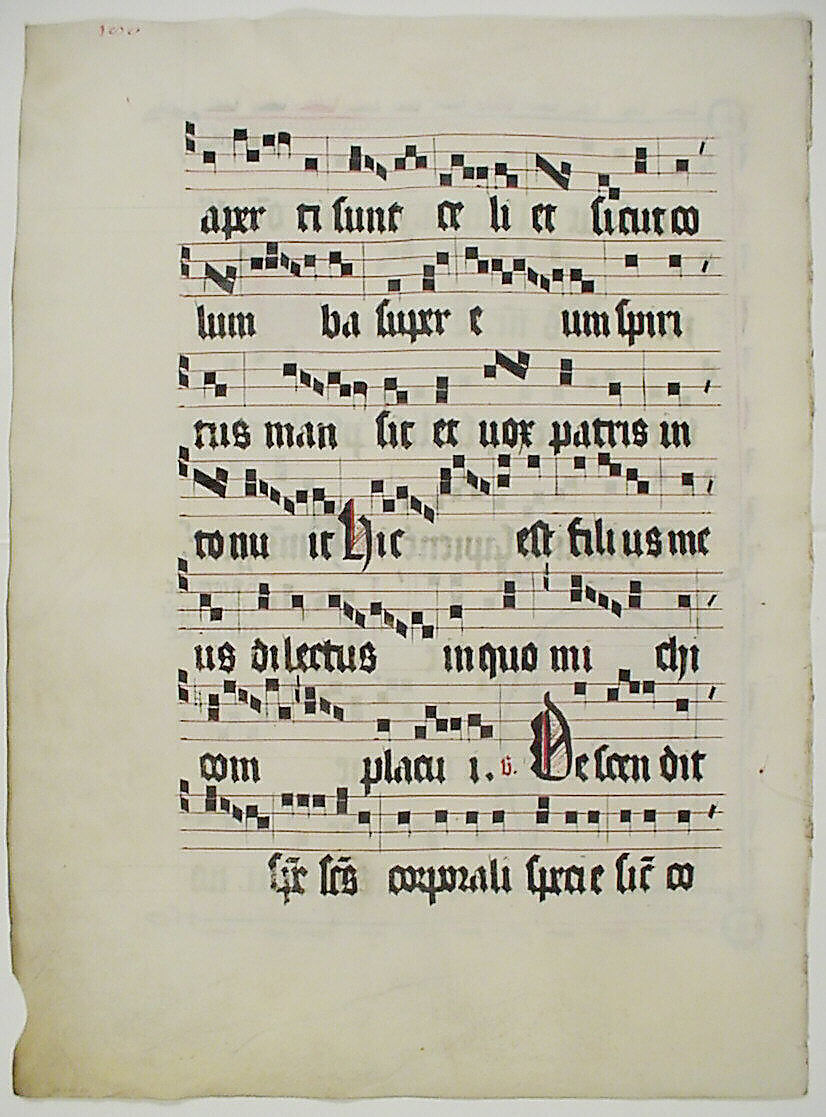 aper ti sunt ce li et sicut co
lum ba super e um spiri
tus man sit et uox patris in
tonu it Hic est fili us me
us dilectus in quo mi chi
com placu i. v. Descen dit
sp̄c sc̄s corporali specie sic̄ co